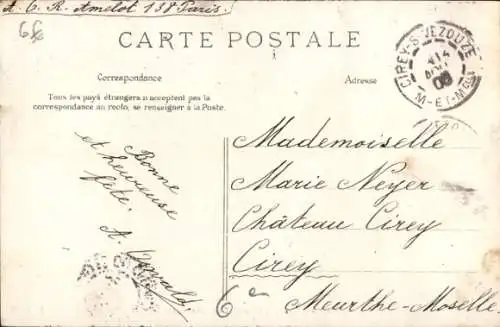 A. G. R. Amelot 138 Paris.
6f
CARTE POSTALE
CIREY-S-VEZOUZE
14
08
M-ET-MLLE
Correspondance
Adresse
Tous les pays étrangers n'acceptent pas la
correspondance au recto, se renseigner à la Poste.
Bonne
et heureuse
fête.
A.
Mademoiselle
Marie Neyer
Château Cirey
Cirey
Meurthe-Moselle
6e